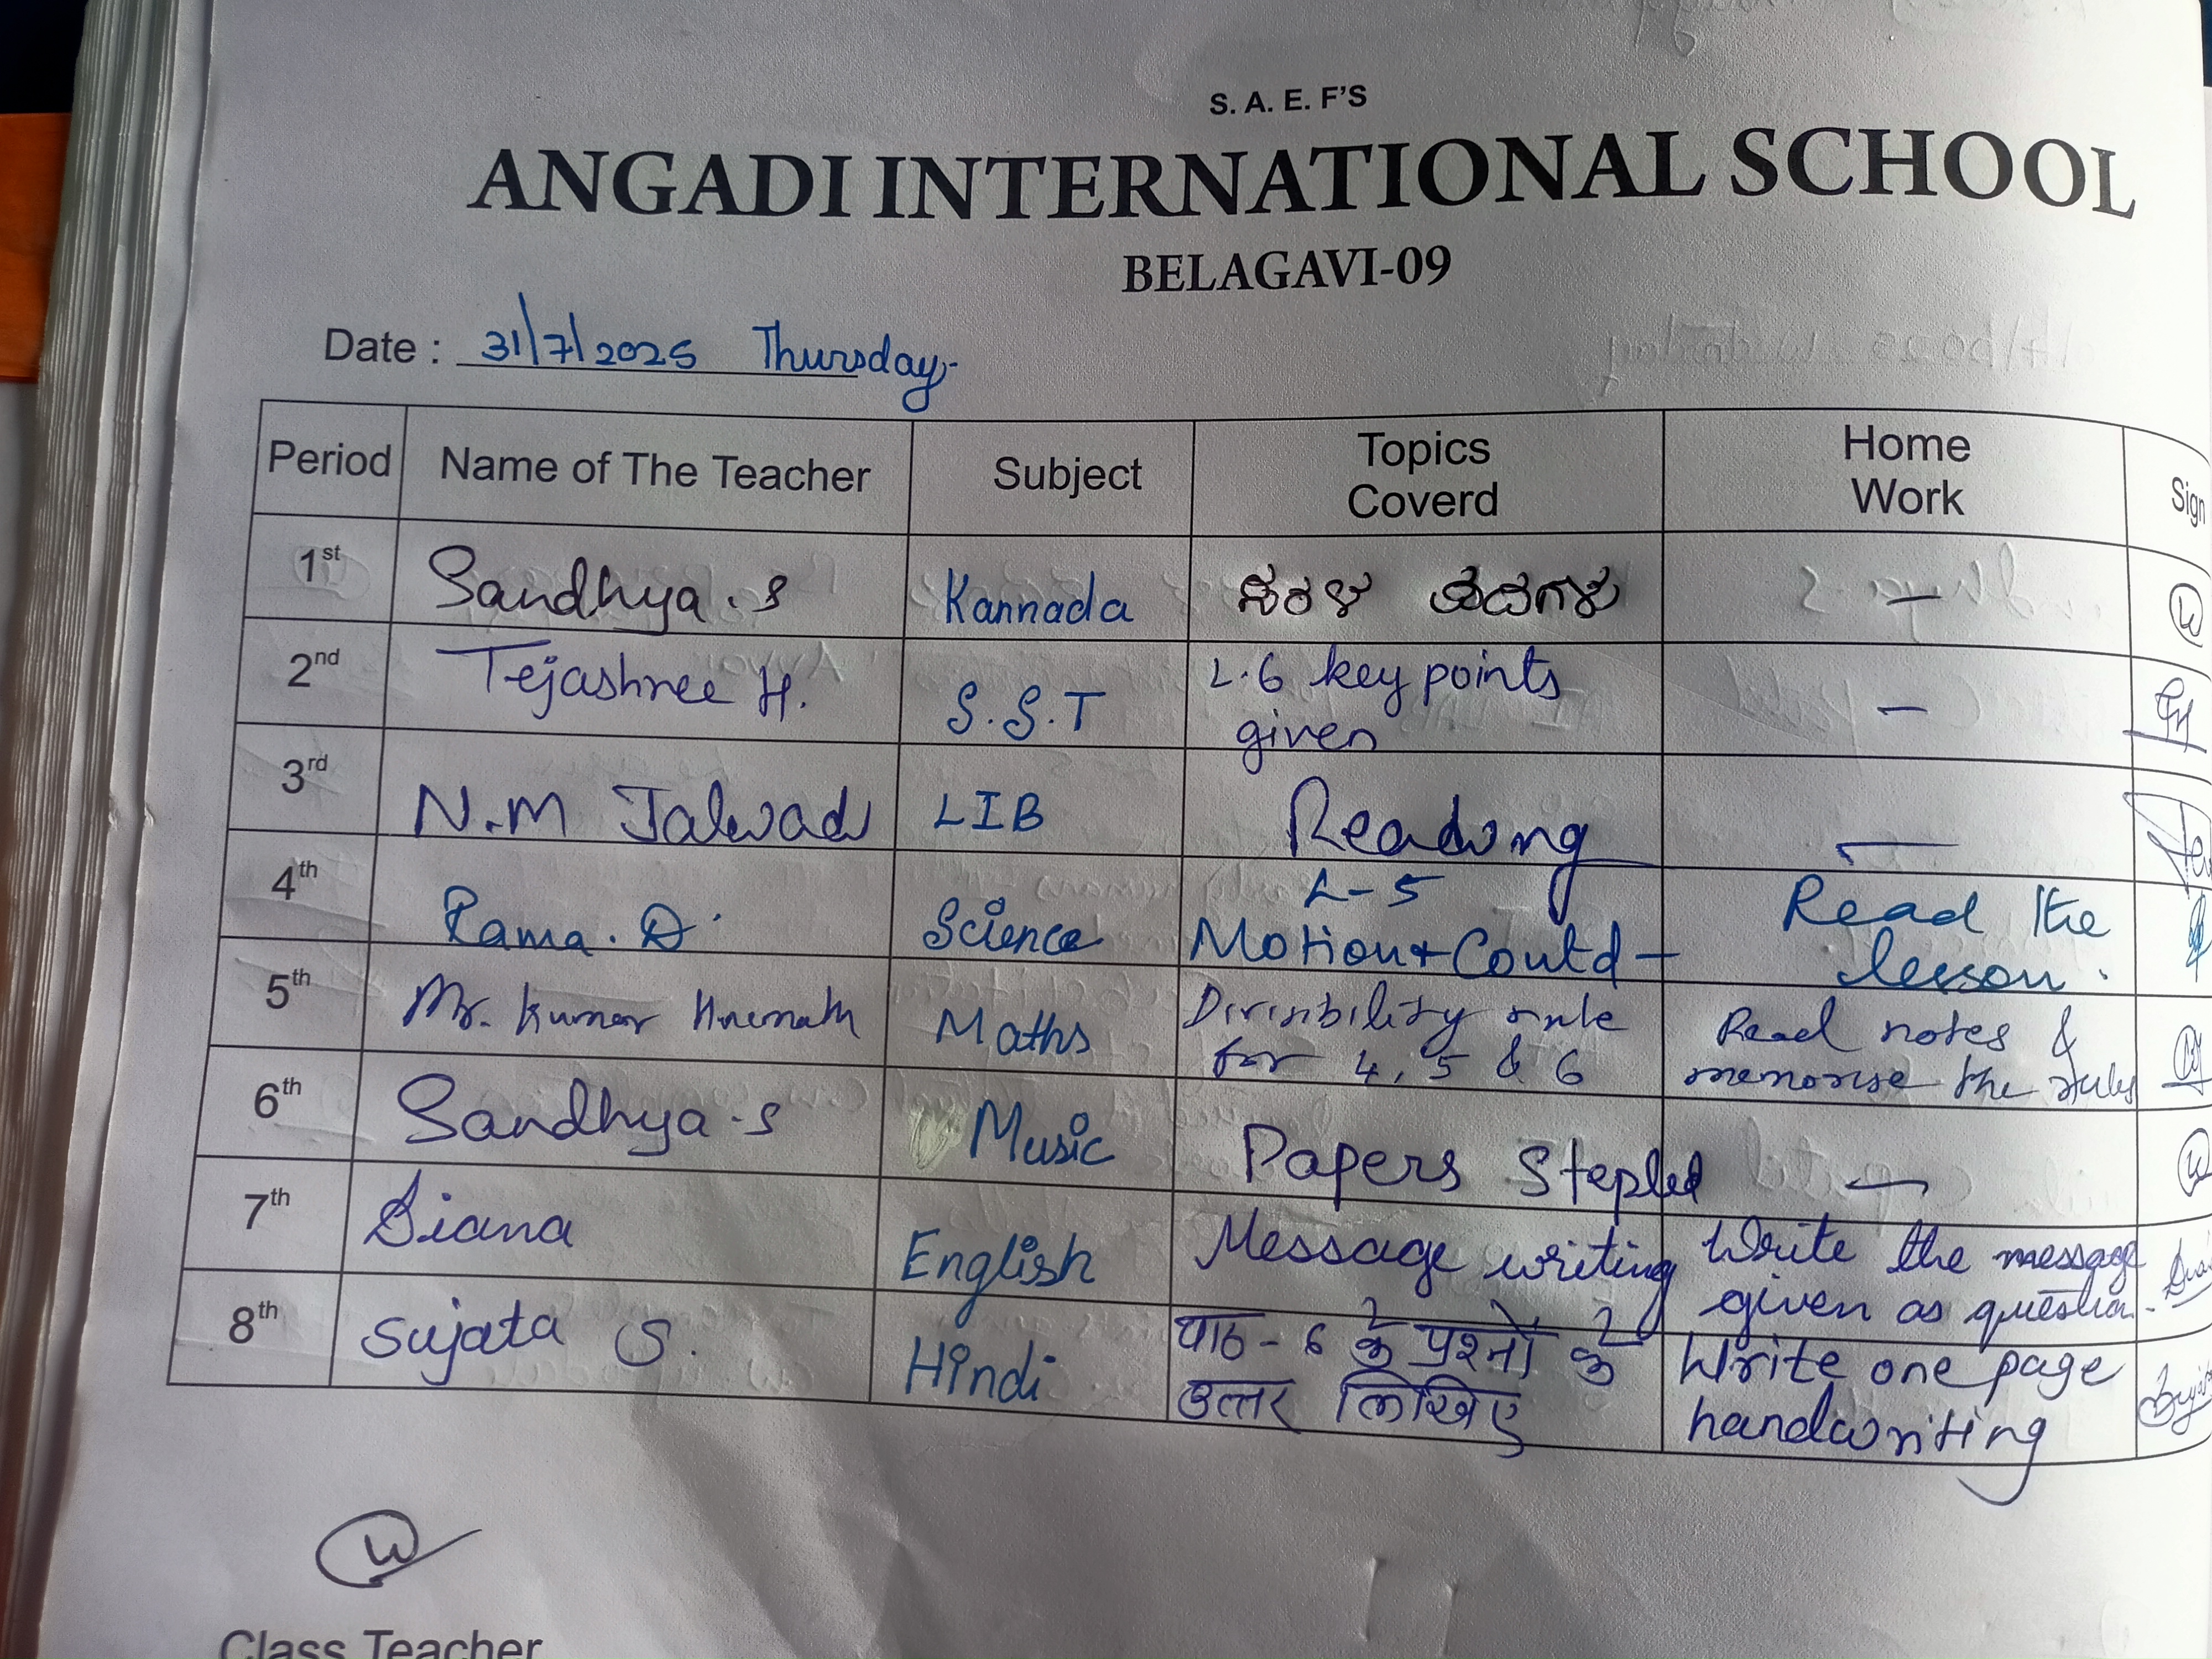 S. A. E. F'S
ANGADI INTERNATIONAL SCHOOL
BELAGAVI-09
Date : 31/7/2025 Thursday
Period Name of The Teacher Subject Topics Coverd Home Work Sign
1st Sandhya. S Kannada ಸರಳ ಪದಗಳು –
2nd Tejashree H. S.S.T L.6 key points given –
3rd N.M Jalwad LIB Reading –
4th Rama. D. Science L-5 Motion + Contd – Read the lesson.
5th Mr. Kumar Hiremath Maths Divisibility rule for 4, 5 & 6 Read notes & memorise the rules
6th Sandhya. S Music Papers Stepled –
7th Diana English Message writing Write the message given as question.
8th Sujata S. Hindi पाठ - 6 के प्रश्नों के उत्तर लिखिए Write one page handwriting
Class Teacher